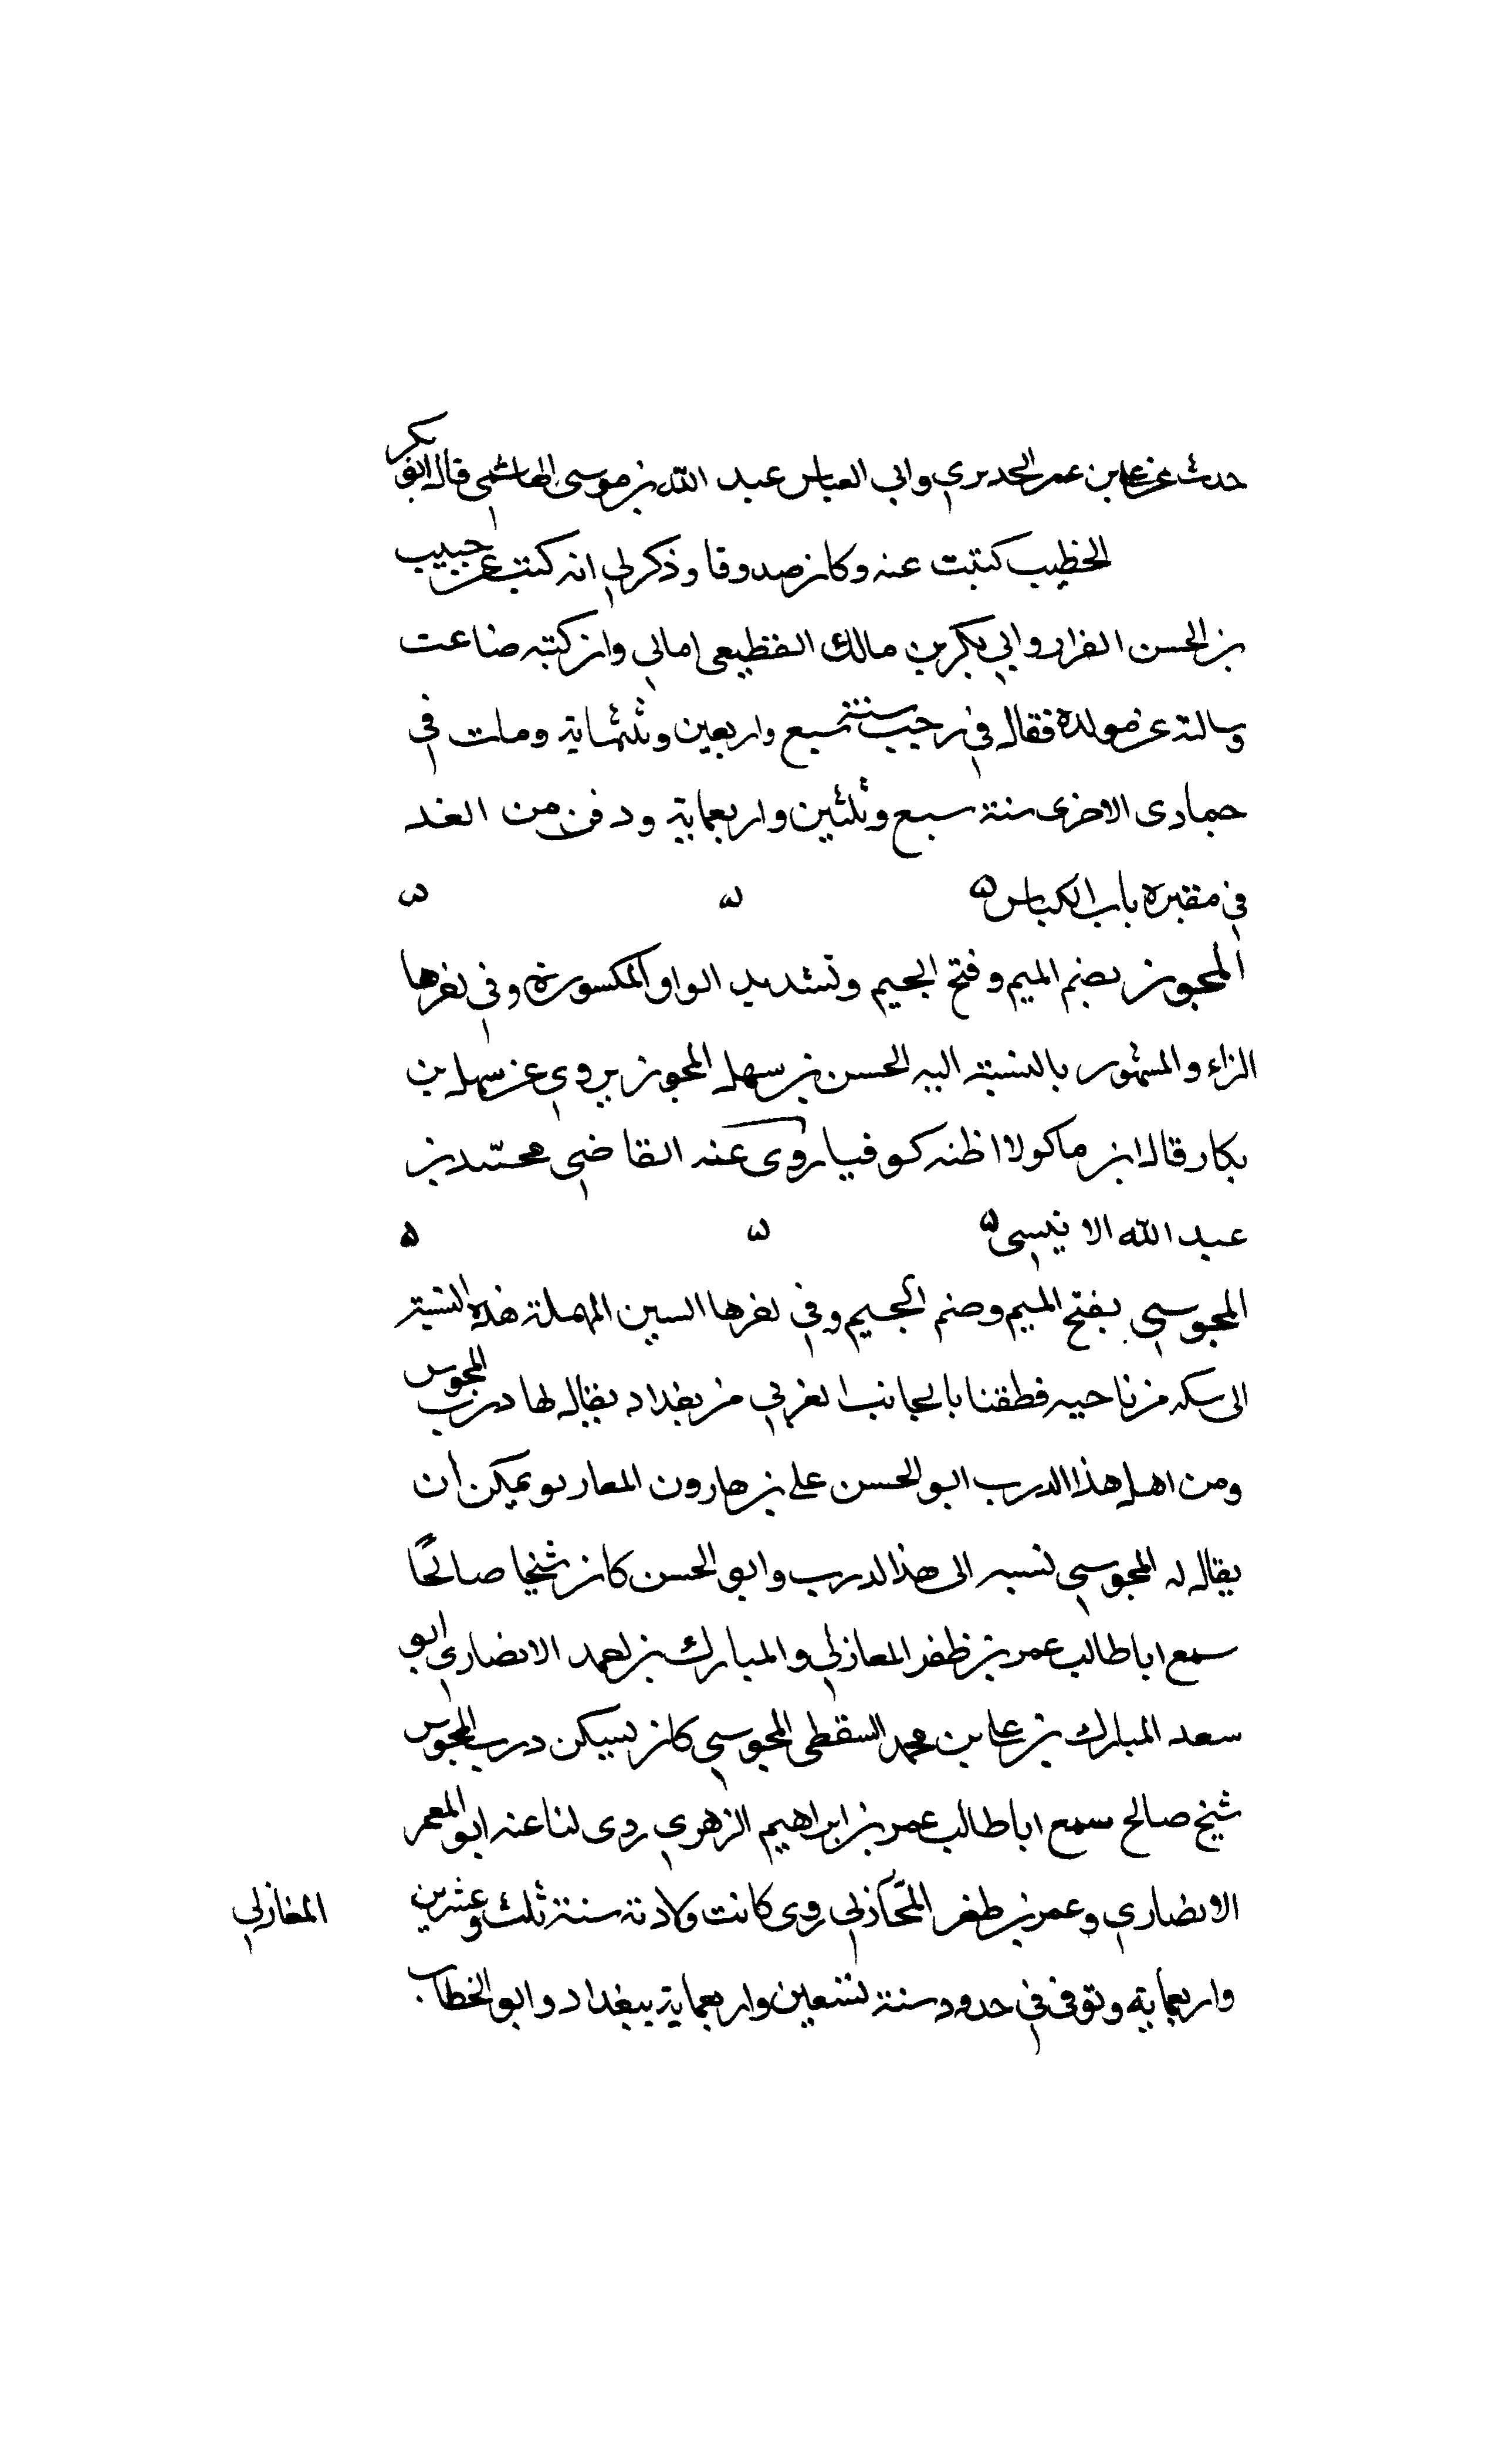 حدث عن علي بن عمر الحريري وابي العباس عبد الله بن موسى الهاشمي قال ابو بكر
الخطيب كتبت عنه وكان صدوقا وذكر لي انه كتب عن حبيب
بن الحسن القزاز وابي بكر بن مالك القطيعي امالي وان كتبه ضاعت
وسالته عن مولده فقال في رجب سنة سبع واربعين وثلثماية ومات في
جمادى الاخرى سنة سبع وثلثين واربعماية ودفن من الغد
في مقبرة باب الكناس ۵ ۵ ۵
المجوز بضم الميم وفتح الجيم وتشديد الواو المكسورة وفي اخرها
الزاء والمشهور بالنسبة اليه الحسن بن سهل المجوز يروي عن سهل بن
بكار قال ابن ماكولا اظنه كوفيا روى عنه القاضي محمد بن
عبد الله الا نيسى ۵ ۵ ۵
المجوسي بفتح الميم وضم الجيم وفي اخرها السين المهملة هذه النسبة
الى سكه من ناحيه قطفتا بالجانب الغربي من بغداد يقال لها درب المجوس
ومن اهل هذا الدرب ابو الحسن علي بن هارون ويمكن أن
يقال له المجوسي لنسبه الى هذا لدرب وابو الحسن كان شيخا صالحًا
سمع ابا طالب عمر بن ظفر المعازلي والمبارك بن احمد الانصاري ابو
سعد المبارك بن علي بن محمد السقطي المجوسي كان يسكن درب المجوس
شيخ صالح سمع ابا طالب عمر بن ابراهيم الزهري روى لنا عنه ابو المعمر
الانصاري وعمر بن ظفر روى كانت ولادته سنة ثلث وعشرين
المغازلي
واربعمايه وتوفى في حدود سنة تسعين واربعماية ببغداد وابو الخطاب